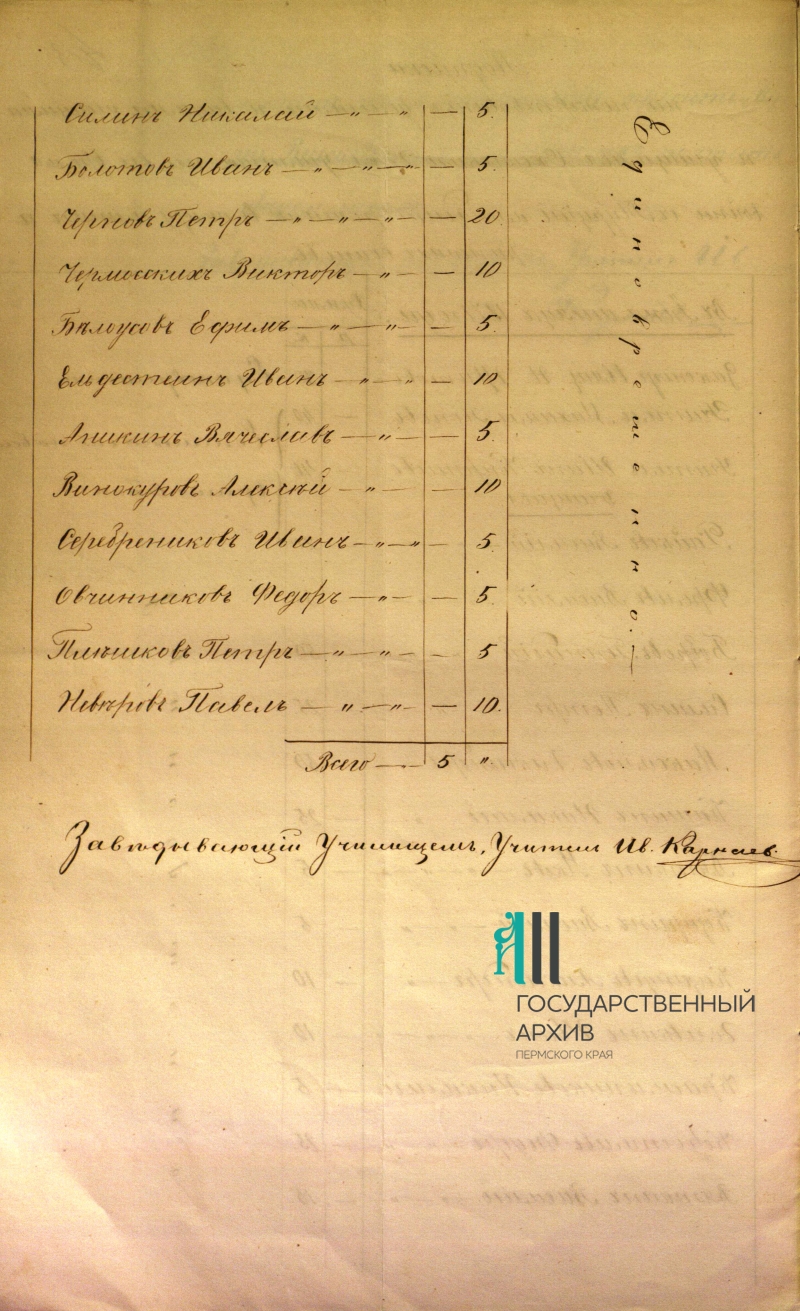 Силинъ Николай — „ — „ — — 5.
Болотовъ Иванъ — „ — „ — — 5.
Черновъ Петръ — „ — „ — „ — — 20
Чермосскихъ Викторъ — „ — — 10
Бѣлоусовъ Ефимъ — „ — „ — — 5
Иванъ — „ — „ — 10
Аникинъ Вячеславъ — „ — — 5
Винокуровъ Алексѣй — „ — — 10
Серебрениковъ Иванъ — „ — „ — 5
Овчинниковъ Федоръ — „ — — 5
Плѣшковъ Петръ — „ — „ — — 5
Павелъ — „ — „ — — 10.
Всего — 5 „
Завѣдывающій Училищемъ, Учитель Ив.
Единовременно.
ГОСУДАРСТВЕННЫЙ
АРХИВ
ПЕРМСКОГО КРАЯ